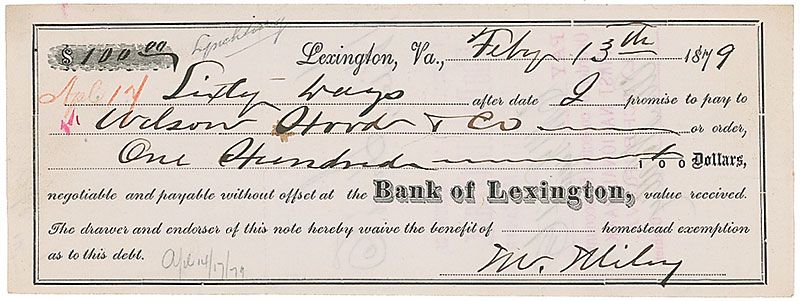 $ 100 00 Lynchburg
Lexington, Va., Feby 13th 1879
Apl 17 Sixty days after date I promise to pay to
Wilson Hood & Co or order,
One Hundred 100 Dollars,
negotiable and payable without offset at the Bank of Lexington, value received.
The drawer and endorser of this note hereby waive the benefit of homestead exemption
as to this debt. Apl 14/17/79 M. Miley